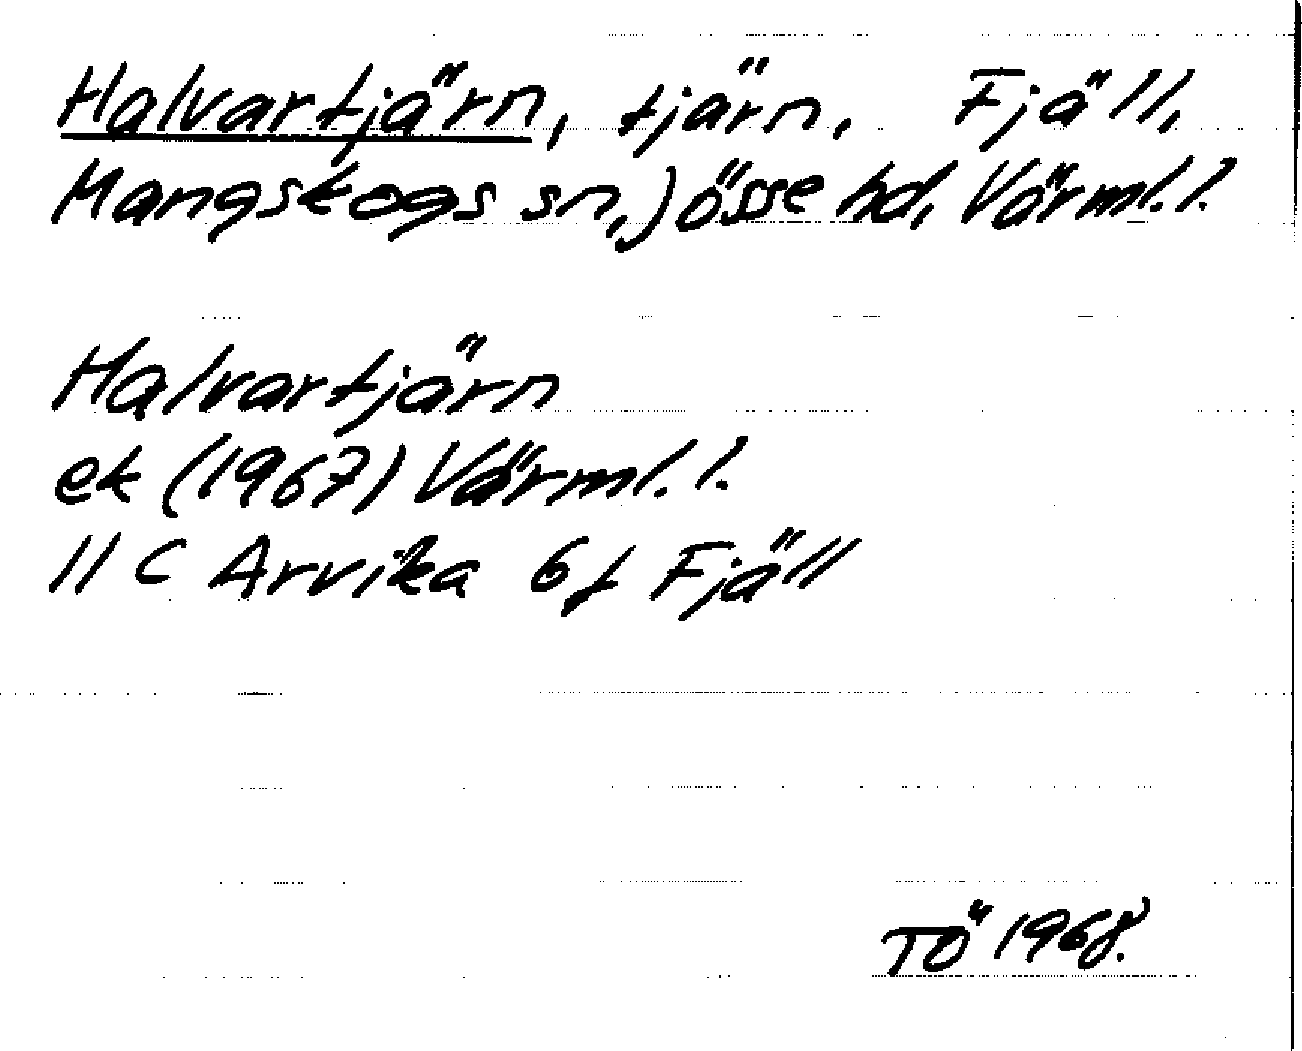 Halvartjärn, tjärn, Fjäll,
Mangskogs sn, Jösse hd, Värml. l.
Halvartjärn
ek (1967) Värml. l.
11 C Arvika 6f Fjäll
TÖ 1968.